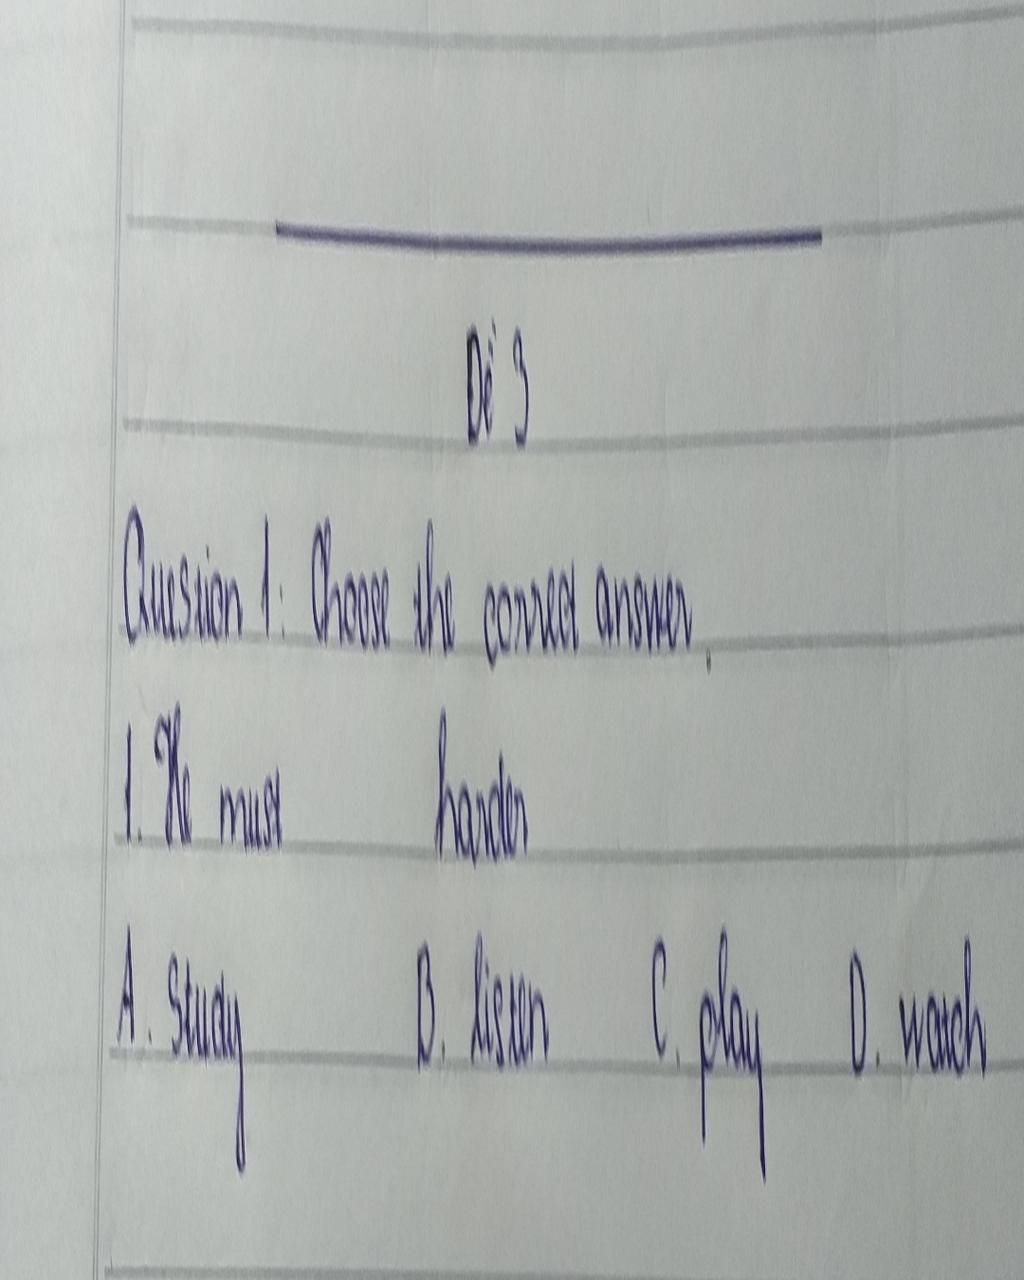 Đề 3
Question 1: Choose the correct answer.
1. He must harder
A. Study B. listen C. play D. watch